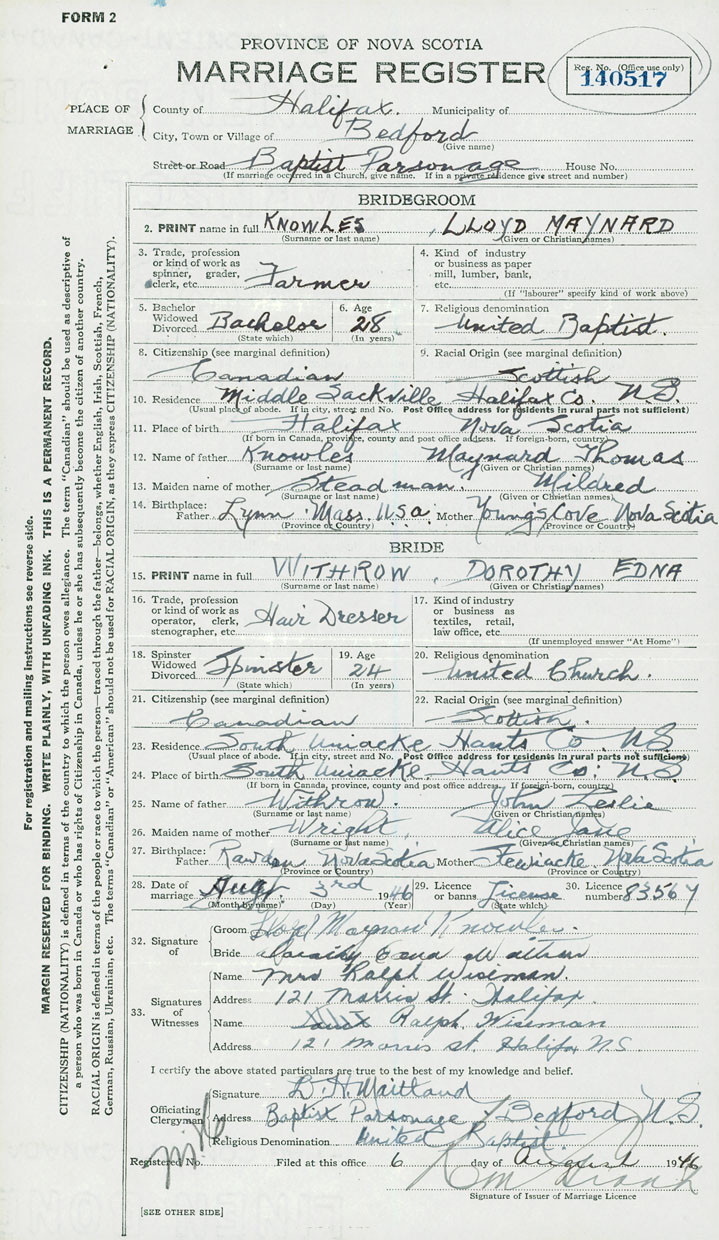 FORM 2
PROVINCE OF NOVA SCOTIA
MARRIAGE REGISTER
Reg. No. (Office use only)
140517
PLACE OF MARRIAGE
County of Halifax. Municipality of
City, Town or Village of Bedford
(Give name)
Street or Road Baptist Parsonage House No.
(If marriage occurred in a Church, give name. If in a private residence give street and number)
BRIDEGROOM
2. PRINT name in full KNOWLES, LLOYD MAYNARD
(Surname or last name) (Given or Christian names)
3. Trade, profession or kind of work as spinner, grader, clerk, etc. Farmer
4. Kind of industry or business as paper mill, lumber, bank, etc.
(If "labourer" specify kind of work above)
5. Bachelor Widowed Divorced Bachelor
(State which)
6. Age 28
(In years)
7. Religious denomination United Baptist.
8. Citizenship (see marginal definition) Canadian
9. Racial Origin (see marginal definition) Scottish
10. Residence Middle Sackville Halifax Co. N.S.
(Usual place of abode. If in city, street and No. Post Office address for residents in rural parts not sufficient)
11. Place of birth Halifax Nova Scotia
(If born in Canada, province, county and post office address. If foreign-born, country)
12. Name of father Knowles Maynard Thomas
(Surname or last name) (Given or Christian names)
13. Maiden name of mother Steadman. Mildred
(Surname or last name) (Given or Christian names)
14. Birthplace: Father Lynn Mass. USa. Mother Youngs Cove Nova Scotia
(Province or Country) (Province or Country)
BRIDE
15. PRINT name in full WITHROW, DOROTHY EDNA
(Surname or last name) (Given or Christian names)
16. Trade, profession or kind of work as operator, clerk, stenographer, etc. Hair Dresser
17. Kind of industry or business as textiles, retail, law office, etc.
(If unemployed answer "At Home")
18. Spinster Widowed Divorced Spinster
(State which)
19. Age 24
(In years)
20. Religious denomination United Church.
21. Citizenship (see marginal definition) Canadian
22. Racial Origin (see marginal definition) Scottish.
23. Residence South Uniacke Hants Co N.S
(Usual place of abode. If in city, street and No. Post Office address for residents in rural parts not sufficient)
24. Place of birth South Uniacke Hants Co: N.S.
(If born in Canada, province, county and post office address. If foreign-born, country)
25. Name of father Withrow. John Leslie
(Surname or last name) (Given or Christian names)
26. Maiden name of mother Wright, Alice Jane
(Surname or last name) (Given or Christian names)
27. Birthplace: Father Rawdon Nova Scotia Mother Stewiacke. Nova Scotia
(Province or Country) (Province or Country)
28. Date of marriage Aug. 3rd 1946
(Month by name) (Day) (Year)
29. Licence or banns License
(State which)
30. Licence number 83567
32. Signature of
Groom Lloyd Maynard Knowles.
Bride Dorothy Edna Withrow
33. Signatures of Witnesses
Name Mrs Ralph Wiseman.
Address 121 Morris St. Halifax.
Name Ralph Wiseman
Address 121 Morris st. Halifax N.S.
I certify the above stated particulars are true to the best of my knowledge and belief.
Officiating Clergyman
Signature D. H. Maitland
Address Baptist Parsonage, Bedford N.S.
Religious Denomination United Baptist.
Registered No. Filed at this office 6 day of August 1946
Signature of Issuer of Marriage Licence
[SEE OTHER SIDE]
For registration and mailing instructions see reverse side.
MARGIN RESERVED FOR BINDING. WRITE PLAINLY, WITH UNFADING INK. THIS IS A PERMANENT RECORD.
CITIZENSHIP (NATIONALITY) is defined in terms of the country to which the person owes allegiance. The term "Canadian" should be used as descriptive of
a person who was born in Canada or who has rights of Citizenship in Canada, unless he or she has subsequently become the citizen of another country.
RACIAL ORIGIN is defined in terms of the people or race to which the person—traced through the father—belongs, whether English, Irish, Scottish, French,
German, Russian, Ukrainian, etc. The terms "Canadian" or "American" should not be used for RACIAL ORIGIN, as they express CITIZENSHIP (NATIONALITY).